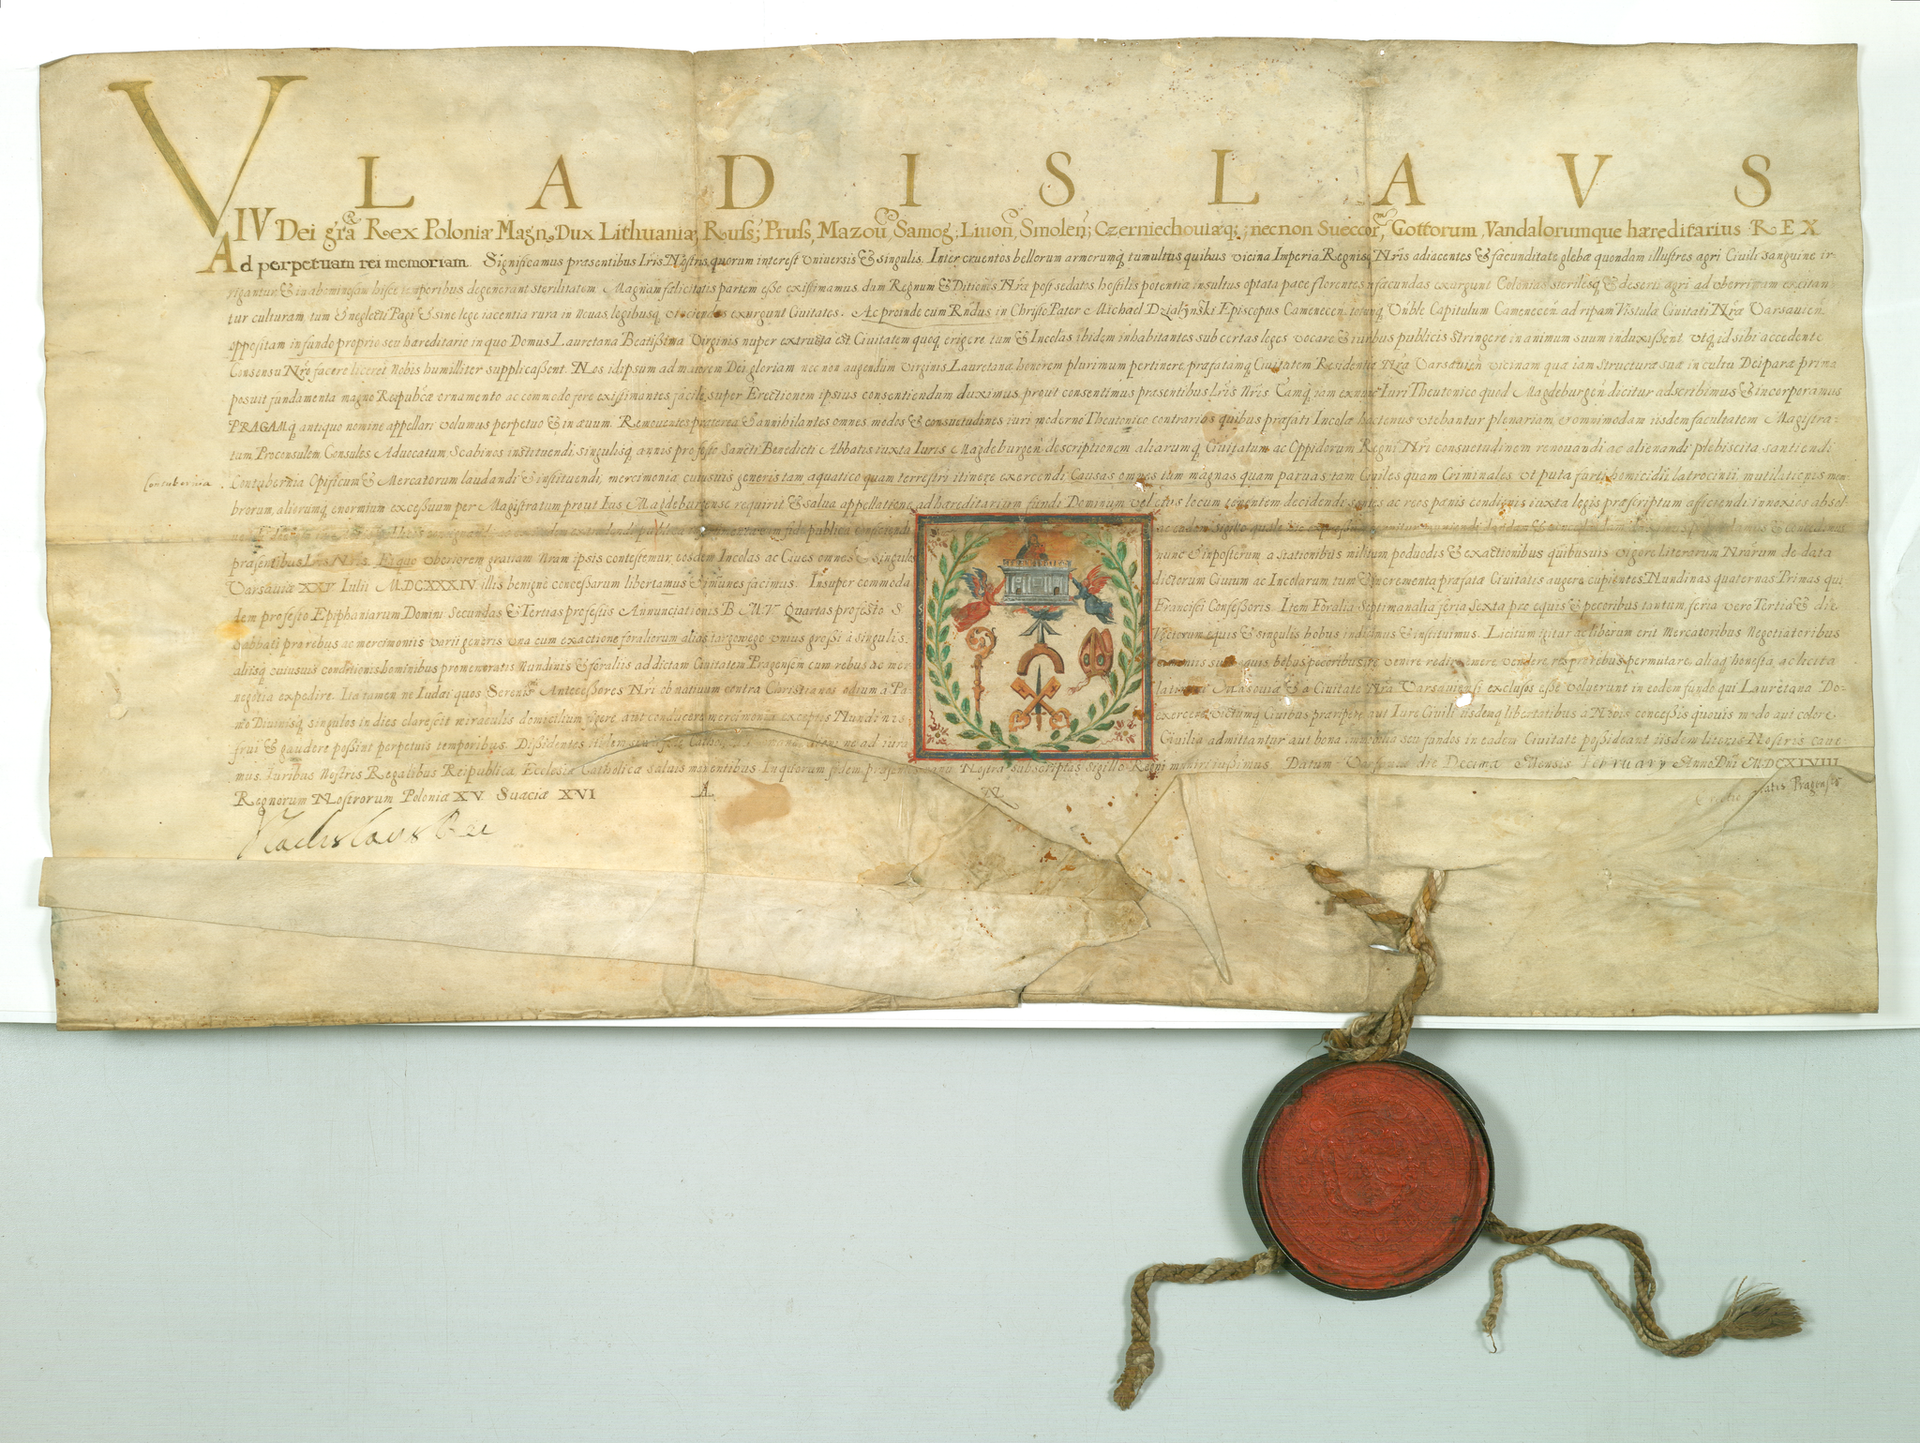 VLADISLAVS
IV Dei grã Rex Poloniæ Magn, Dux Lithuaniæ, Russ; Pruss, Mazou, Samog; Liuon, Smolen; Czerniechouiæq; necnon Sueccor, Gottorum, Vandalorumque hæreditarius REX
Ad perpetuam rei memoriam Significamus præsentibus Lris Nostris quorum interest Vniuersis & singulis. Inter cruentos bellorum armorumq tumultus quibus vicina Imperia Regnis Nris adiacentes & fæcunditate glebæ quondam illustres agri Ciuili sanguine ir-
rigantur & in abominosam hisce temporibus degenerant sterilitatem Magnam fælicitatis partem esse existimamus dum Regnum & Ditiones Nræ possedatos hostilis potentia insultus optata pace florentes in fæcundas exurgunt Colonias steriles q & deserti agri ad vberrimam excitan
tur culturam, tum & neglecti Pagi & sine lege iacentia rura in nouas legibusq exurgunt Ciuitates. Ac proinde cum Rndus in Christo Pater Michael Dzialÿnski Episcopus Camenecen. totumq Vnble Capitulum Camenecen ad ripam Vistulæ Ciuitati Nræ Varsauien
oppositam in fundo proprio seu hæreditario in quo Domus Lauretana Beatissimæ Virginis nuper extructa est Ciuitatem quoq erigere tum & Incolas ibidem inhabitantes sub certas leges vocare & iuribus publicis stringere in animum suum induxissent vtq id sibi accedente
Consensu Nro facere liceret Nobis humilliter supplicassent. Nos id ipsum ad maiorem Dei gloriam nec non augendum Virginis Lauretanæ honorem plurimum pertinere præfatamq Ciuitatem Residentiæ Nræ Varsauien vicinam quæ iam structuræ suæ in cultu Deiparæ prima
posuit fundamenta magno Reipubcæ ornamento ac commodo fore existimantes facile super Erectionem ipsius consentiendum duximus prout consentimus præsentibus Lris Nris Eamq iam ex nunc Iuri Theutonico quod Magdeburgen dicitur adscribimus & incorporamus
PRAGAMq antiquo nomine appellari volumus perpetuo & in æuum. Remouentes præterea & annihilantes omnes modos & consuetudines iuri moderno Theutonico contrarios quibus præfati Incolæ hactenus vtebantur plenariam & omnimodam iisdem facultatem Magistra-
tum Proconsulem Consules Aduocatum Scabinos instituendi, singulisq annis pro festo Sancti Benedicti Abbatis iuxta Iuris Magdeburgen descriptionem aliarumq Ciuitatum ac Oppidorum Regni Nri consuetudinem renouandi ac alienandi plebiscita santiendi
Contubernia
Contubernia Opificum & Mercatorum laudandi & instituendi, mercimonia cuiusuis generis tam aquatico quam terrestri itinere exercendi Causas omnes tam magnas quam paruas tam Ciuiles quam Criminales vt puta furti homicidii latrocinii, mutilationis mem
brorum, aliorumq enormium excessuum per Magistratum prout Ius Magdeburgense requirit & salua appellatione ad hæreditarium fundi Dominum vel eius locum tenentem decidendi sontes ac reos pænis condignis iuxta legis præscriptum afficiendi innoxios absol-
præsentibus Lris Nris. Et quo vberiorem gratiam Nram ipsis contestemur eosdem Incolas ac Ciues omnes & singulos nunc & inposterum a stationibus militum poduodis & exactionibus quibusuis vigore literarum Nrarum de data
Varsauiæ XXV Iulii MDCXXXIV illis benigne concessarum libertamus & immunes facimus. Insuper commoda dictorum Ciuium ac Incolarum tum & incrementa præfatæ Ciuitatis augere cupientes Nundinas quaternas Primas qui
dem pro festo Epiphaniarum Domini Secundas & Tertias pro festis Annunciationis B. M. V. Quartas pro festo S Francisci Confessoris. Item Foralia Septimanalia feria Sexta pro equis & pecoribus tantum, feria vero Tertia & die
Sabbati pro rebus ac mercimoniis varii generis vna cum exactione foraliorum alias targowego vnius grossi à singulis. Vectorum equis & singulis bobus inducimus & instituimus. Licitum igitur ac liberum erit Mercatoribus Negotiatoribus
aliisq cuiusuis conditionis hominibus pro memoratis Nundinis & foraliis ad dictam Ciuitatem Pragensem cum rebus ac mer cimoniis suis equis bobus pecoribus venire redire emere vendere res pro rebus permutare, aliaq honesta, ac licita
negotia expedire. Ita tamen ne Iudæi quos Seren Antecessores Nri ob natiuum contra Christianos odium a Pa latinatu Masouiæ & a Ciuitate Nra Varsauiensi exclusos esse voluerunt in eodem fundo qui Lauretana Do-
mo Diuinisq singulos in dies clarescit miraculis domicilium figere aut conducere mercimonia exceptis Nundinis exercere victumq Ciuibus præripere aut Iure Ciuili iisdemq libertatibus à Nobis concessis quouis modo aut colore
frui & gaudere possint perpetuis temporibus. Dissidentes ne ad iura Ciuilia admittantur aut bona immobilia seu fundos in eadem Ciuitate possideant iisdem literis Nostris caue-
mus. Iuribus Nostris Regalibus Reipublicæ Ecclesiæ Catholicæ saluis manentibus. In quorum fidem præsen manu Nostra subscriptas sigillo Regni muniri iussimus. Datum Varsauiæ die Decima Mensis February Anno Dni MDCXLVIII
Regnorum Nostrorum Poloniæ XV Suæciæ XVI
Vladislaus Rex